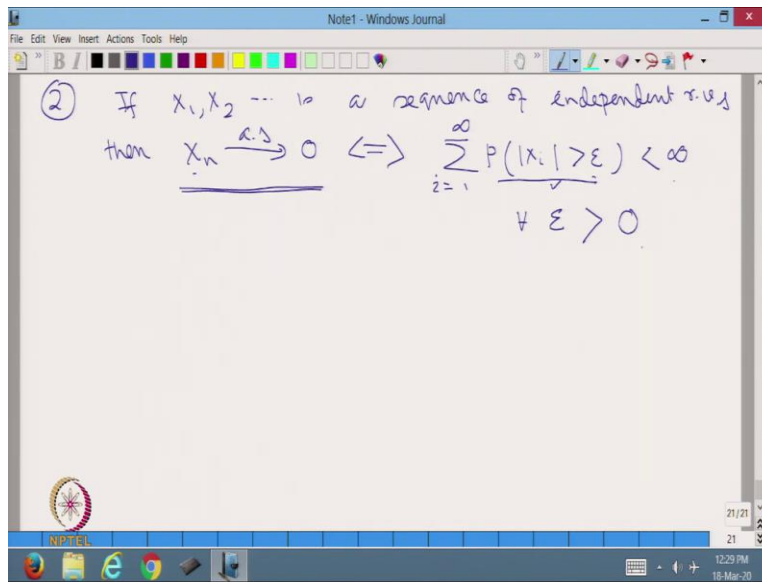 Note1 - Windows Journal
File Edit View Insert Actions Tools Help
② If X₁, X₂ --- is a sequence of independent r.v.s
then Xₙ --a.s--> 0 <=> ∑_{i=1}^{∞} P(|Xᵢ| > ε) < ∞
∀ ε > 0
NPTEL
21/21
21
12:29 PM
18-Mar-20